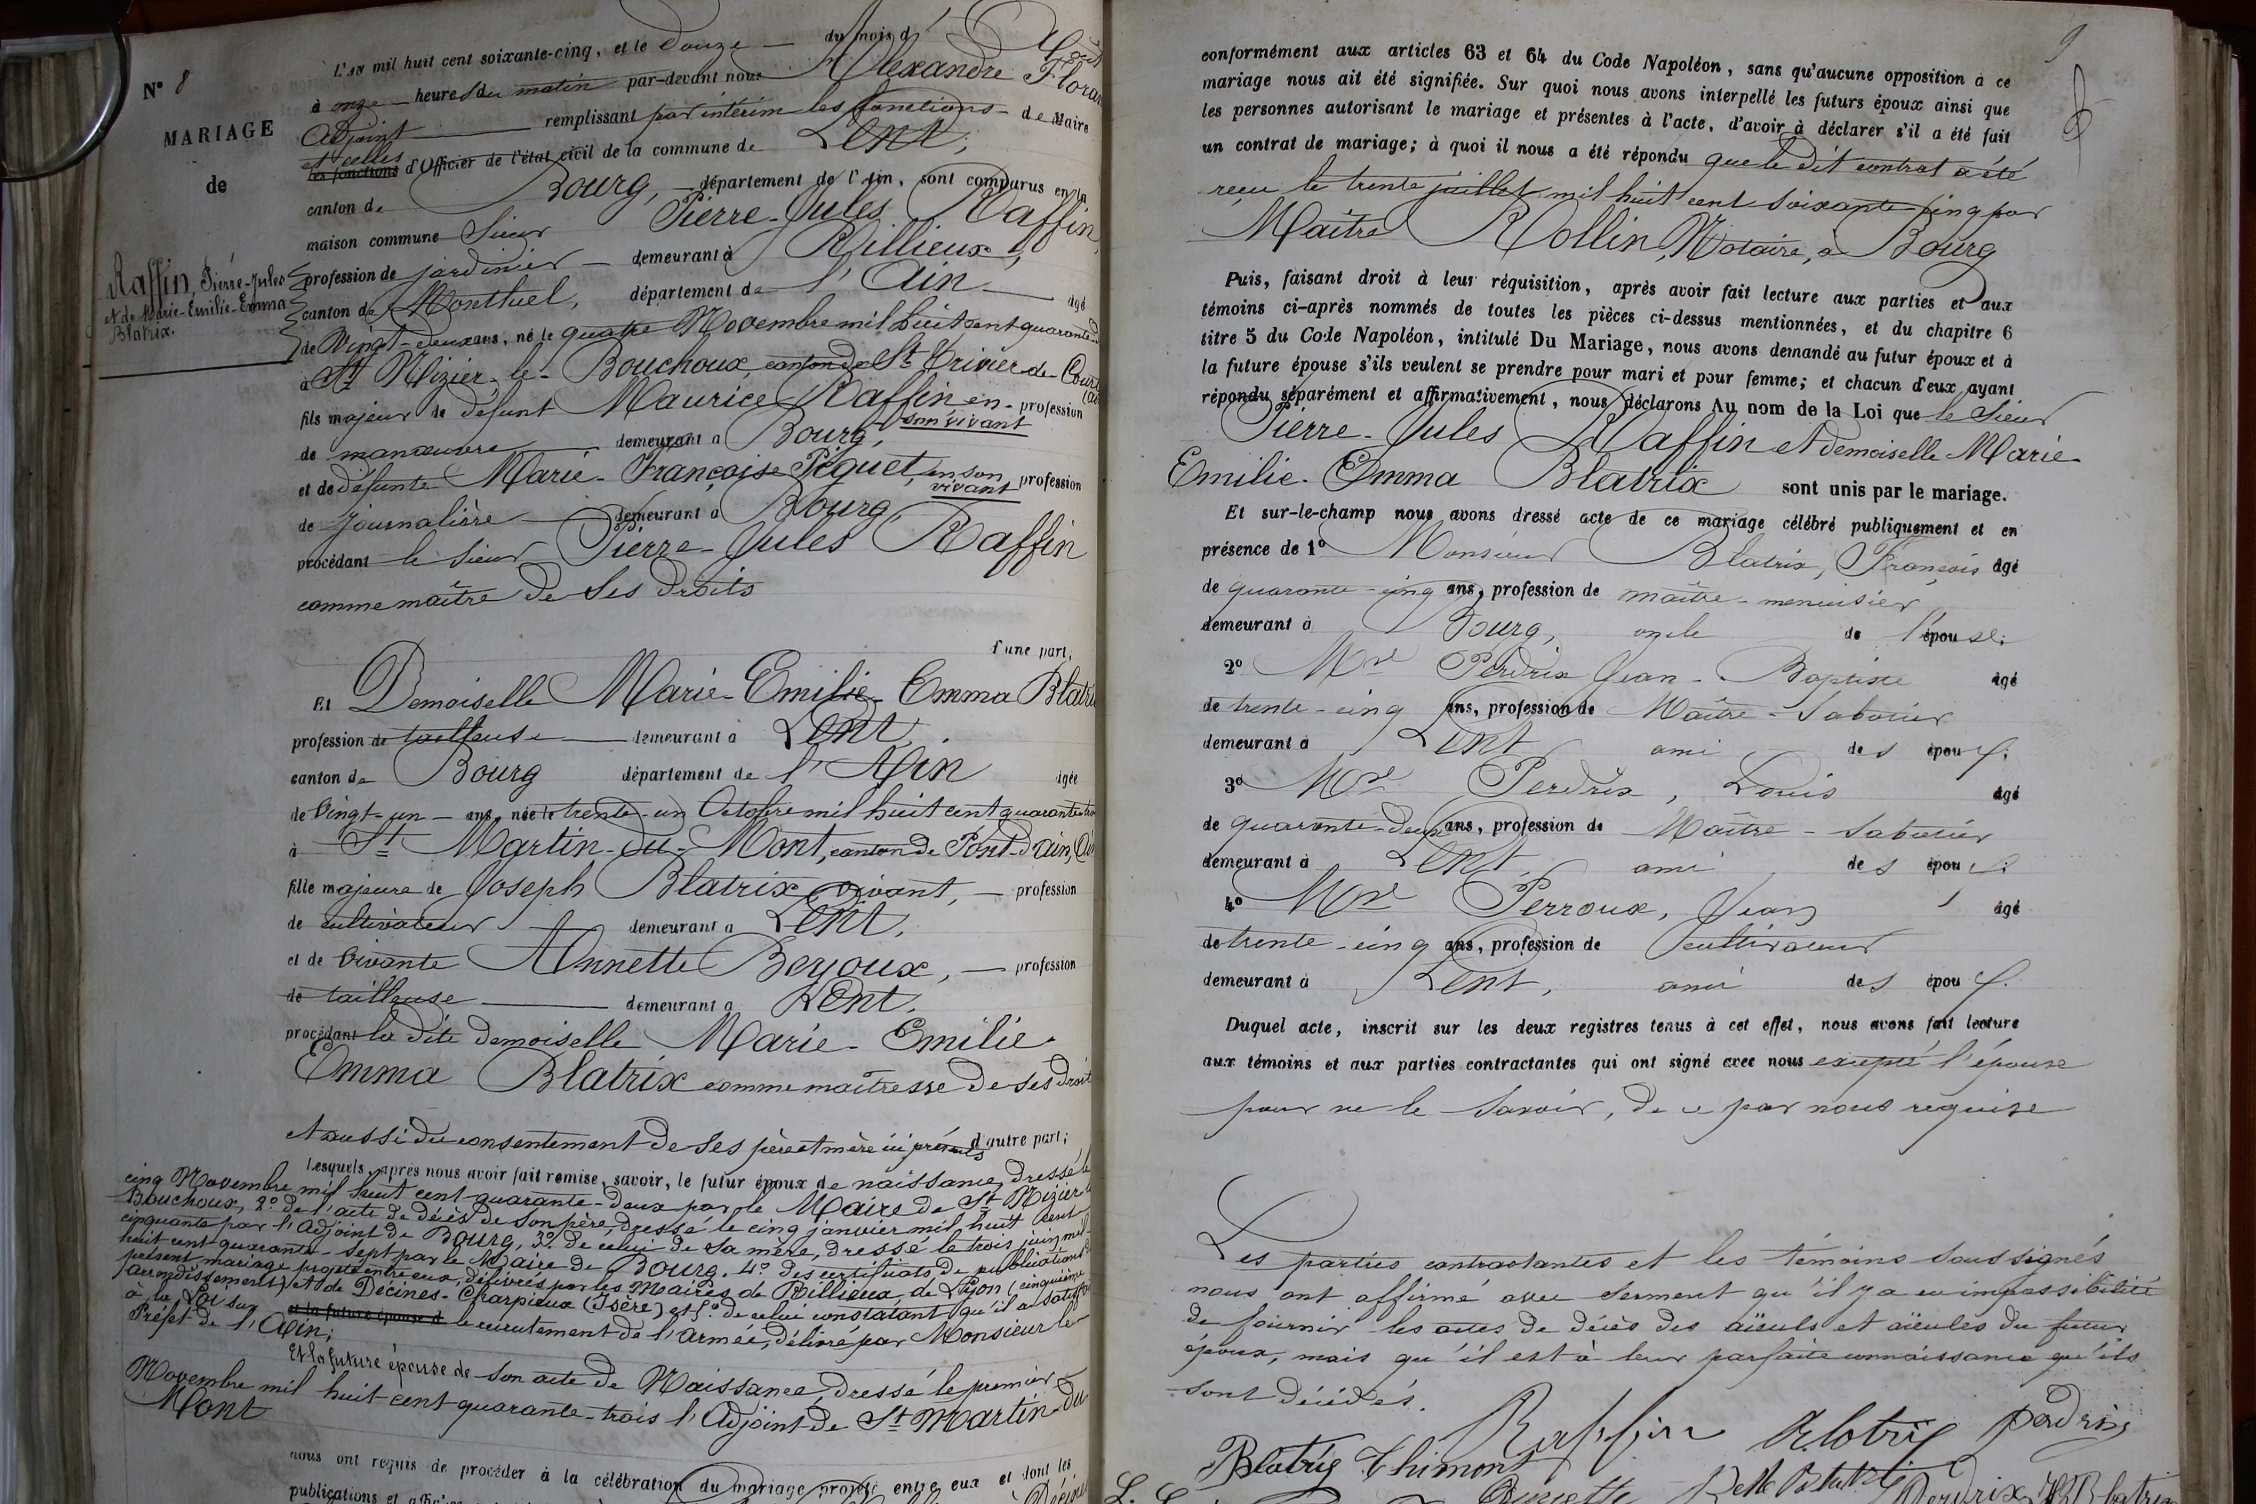 N° 8
MARIAGE
de
Raffin, Pierre-Jules
et de Marie-Emilie-Emma
Blatrix.
L'an mil huit cent soixante-cinq, et le Douze du mois d'
à onze heures du matin par-devant nous Alexandre Floran
Adjoint remplissant par intérim les fonctions de Maire
et celles
les fonctions d'Officier de l'état civil de la commune de Lent,
canton de Bourg, département de l'Ain, sont comparus en la
maison commune Sieur Pierre-Jules Raffin,
profession de jardinier demeurant à Rillieux,
canton de Montluel, département de l'Ain âgé
de Vingt-deux ans, né le quatre Novembre mil huit cent quarante
à St Nizier-le-Bouchoux, canton de St Trivier-de-Cour
fils majeur de défunt Maurice Raffin en profession
son vivant
de manœuvre demeurant à Bourg,
et de défunte Marie-Françoise Piquet, en son profession
vivant
de journalière demeurant à Bourg
procédant le Sieur Pierre-Jules Raffin
comme maître de ses droits
d'une part,
Et Demoiselle Marie-Emilie-Emma Blatri
profession de tailleuse demeurant à Lent,
canton de Bourg département de l'Ain âgée
de Vingt-un ans, née le trente-un Octobre mil huit cent quarante
à St Martin-du-Mont, canton de Pont-d'Ain,
fille majeure de Joseph Blatrix vivant, profession
de cultivateur demeurant à Lent,
et de vivante Annette Beyoux, profession
de tailleuse demeurant à Lent.
procédant la dite demoiselle Marie-Emilie
Emma Blatrix comme maîtresse de ses droit
et aussi du consentement de ses père et mère ici présents d'autre part;
Lesquels, après nous avoir fait remise, savoir, le futur époux de naissance, dressé le
cinq Novembre mil huit cent quarante-deux par le Maire de St Nizier
Bouchoux, 2° de l'acte de décès de son père, dressé le cinq janvier mil huit cent
cinquante par l'Adjoint de Bourg, 3° de celui de sa mère, dressé le trois juin mil
huit cent quarante-sept par le Maire de Bourg. 4° des certificats de publications
présent mariage projeté entre eux, délivrés par les Maires de Rillieux, de Lyon (cinquième
arrondissement) et de Décines-Charpieux (Isère) et 5° de celui constatant qu'il a satisf
à la Loi sur et la future épouse d le recrutement de l'armée, délivré par Monsieur le
Préfet de l'Ain;
Et la future épouse de son acte de Naissance, dressé le premier
Novembre mil huit cent quarante-trois l'Adjoint de St Martin-du
Mont
nous ont requis de procéder à la célébration du mariage projeté entre eux et dont les
publications et
9
conformément aux articles 63 et 64 du Code Napoléon, sans qu'aucune opposition à ce
mariage nous ait été signifiée. Sur quoi nous avons interpellé les futurs époux ainsi que
les personnes autorisant le mariage et présentes à l'acte, d'avoir à déclarer s'il a été fait
un contrat de mariage; à quoi il nous a été répondu que le dit contrat a été
reçu le trente juillet mil huit cent soixante-cinq par
Maître Rollin, Notaire, à Bourg
Puis, faisant droit à leur réquisition, après avoir fait lecture aux parties et aux
témoins ci-après nommés de toutes les pièces ci-dessus mentionnées, et du chapitre 6
titre 5 du Code Napoléon, intitulé Du Mariage, nous avons demandé au futur époux et à
la future épouse s'ils veulent se prendre pour mari et pour femme; et chacun d'eux ayant
répondu séparément et affirmativement, nous déclarons Au nom de la Loi que le Sieur
Pierre-Jules Raffin et demoiselle Marie-
Emilie-Emma Blatrix sont unis par le mariage.
Et sur-le-champ nous avons dressé acte de ce mariage célébré publiquement et en
présence de 1° Monsieur Blatrix, François âgé
de quarante-cinq ans, profession de maître-menuisier
demeurant à Bourg, oncle de l'épouse.
2° Mr Perdrix Jean-Baptiste âgé
de trente-cinq ans, profession de Maître-Sabotier
demeurant à Lent ami des épou x.
3° Mr Perdrix, Louis âgé
de quarante-deux ans, profession de Maître-Sabotier
demeurant à Lent ami des épou x.
4° Mr Perroux, Jean âgé
de trente-cinq ans, profession de cultivateur
demeurant à Lent, ami des épou x.
Duquel acte, inscrit sur les deux registres tenus à cet effet, nous avons fait lecture
aux témoins et aux parties contractantes qui ont signé avec nous excepté l'épouse
pour ne le savoir, de ce par nous requise
Les parties contractantes et les témoins soussignés
nous ont affirmé avec serment qu'il y a eu impossibilité
de fournir les actes de décès des aïeuls et aïeules du futur
époux, mais qu'il est à leur parfaite connaissance qu'ils
sont décédés.
Raffin Blatrix Perdrix
Blatrix Thimont
Perdrix JB Blatrix